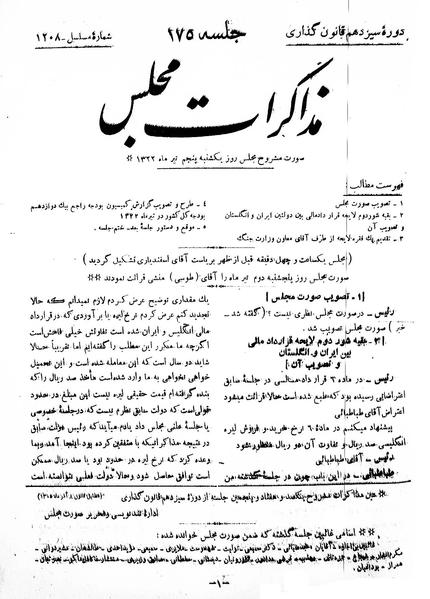 دورهٔ سیزدهم قانون گذاری
جلسه ۲۷۵
شمارهٔ مسلسل - ۱۲۰۸
مذاکرات مجلس
صورت مشروح مجلس روز یکشنبه پنجم تیر ماه ۱۳۲۲ *
فهرست مطالب:
۱ - تصویب صورت مجلس
۲ - بقیه شور دوم لایحه قرارداد مالی بین دولتین ایران و انگلستان
و تصویب آن
۳ - تقدیم یک فقره لایحه از طرف آقای معاون وزارت جنگ
۴ - طرح و تصویب گزارش کمیسیون بودجه راجع بیک دوازدهم
بودجه کل کشور در تیر ماه ۱۳۲۲
۵ - موقع و دستور جلسهٔ بعد - ختم جلسه
(مجلس یکساعت و چهل دقیقه قبل از ظهر بریاست آقای اسفندیاری تشکیل گردید)
صورت مجلس روز پنجشنبه دوم تیر ماه را آقای (طوسی) منشی قرائت نمودند ***
[۱ - تصویب صورت مجلس]
رئیس - در صورت مجلس نظری نیست؟ (گفته شد -
خیر) صورت مجلس تصویب شد.
[۲ - بقیه شور دوم لایحه قرارداد مالی
بین ایران و انگلستان
و تصویب آن]
رئیس - در ماده ۳ قرارداد مالی در جلسهٔ سابق
اعتراضاتی رسیده بود که طبع شده است حالا قرائت میشود
اعتراض آقای طباطبائی
پیشنهاد میکنم در مادهٔ ۳ نرخ خرید و فروش لیره
انگلیسی صد ریال و تفاوت آن دو ریال منظور شود
رئیس - آقای طباطبائی
طباطبائی - در این باب چون در جلسهٔ گذشته من
یک مقداری توضیح عرض کردم لازم نمیدانم که حالا
تجدید کنم عرض کردم نرخ لیره با برآوردی که در قرارداد
مالی انگلیس و ایران شده است تفاوتش خیلی فاحش است
اگرچه ما مکرر این مطلب را گفته‌ایم اما تقریباً حالا
شاید دو سال است که این معامله شده است و این تحمیل
خواهی نخواهی به ما وارد شده است مأخذ صد ریال را که
بنده گرفته‌ام قیمت حقیقی لیره نیست این مبلغ در حدود
قولی است که دولت سابق نظرم نیست که در جلسهٔ خصوصی
یا جلسهٔ علنی مجلس داد یادم میآید که رئیس دولت سابق
در نتیجه مذاکراتیکه با متفقین کرده بود اینجا آمد و بما
وعده کرد که نرخ لیره در حدود نود یا صد ریال ممکن
است توافق حاصل شود و حالا دولت فعلی نتوانسته است
* عین مذاکرات مشروح یکصد و هفتاد و پنجمین جلسه از دورهٔ سیزدهم قانون گذاری
ادارهٔ تندنویسی و تحریر صورت مجلس
*** اسامی غائبین جلسهٔ گذشته که ضمن صورت مجلس خوانده شده:
- ۱ -